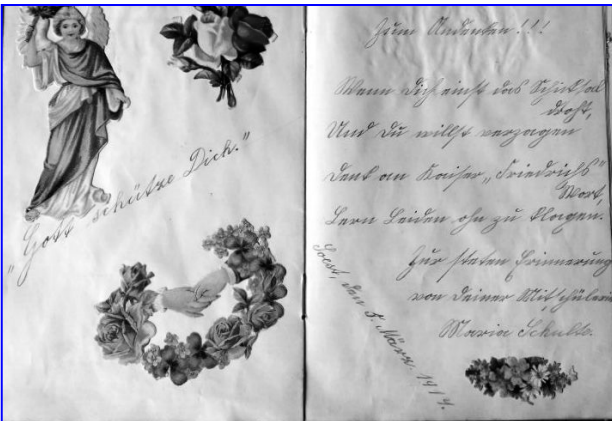 "Gott schütze Dich."
Zum Andenken!!!
Wenn Dich einst das Schicksal
droht,
Und Du willst verzagen
Denk an Kaiser „Friedrichs"
Wort,
Lern Leiden ohn zu klagen.
Zur steten Erinnerung
von Deiner Mitschülerin
Maria Schulte.
Soest, den 5. März 1914.